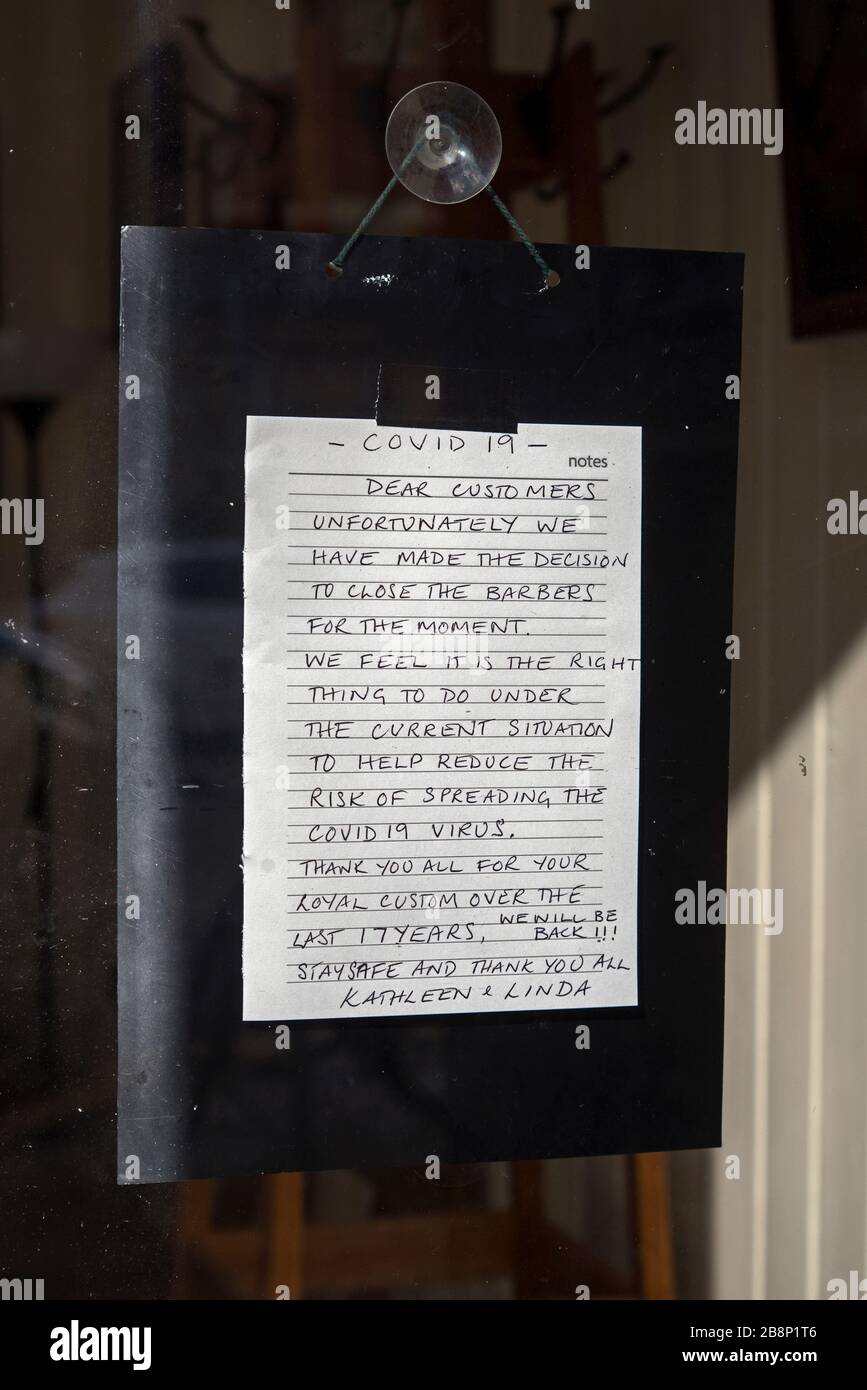 - COVID 19 -
notes
DEAR CUSTOMERS
UNFORTUNATELY WE
HAVE MADE THE DECISION
TO CLOSE THE BARBERS
FOR THE MOMENT.
WE FEEL IT IS THE RIGHT
THING TO DO UNDER
THE CURRENT SITUATION
TO HELP REDUCE THE
RISK OF SPREADING THE
COVID 19 VIRUS.
THANK YOU ALL FOR YOUR
LOYAL CUSTOM OVER THE
LAST 17 YEARS, WE WILL BE
BACK !!!
STAYSAFE AND THANK YOU ALL
KATHLEEN & LINDA
alamy
alamy
alamy
a
a
a
a
alamy
Image ID: 2B8P1T6
www.alamy.com